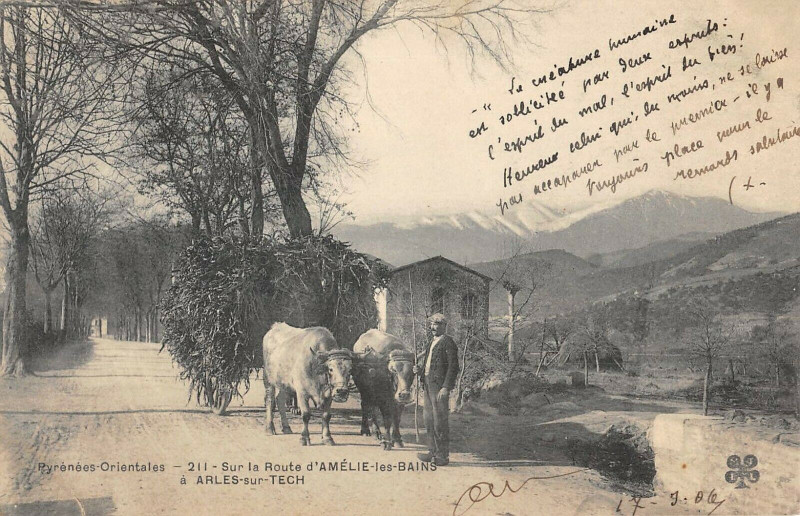 "La créature humaine
est sollicité par deux esprits:
l'esprit du mal, l'esprit du bien!
Heureux celui qui, du moins, ne se laisse
pas accaparer par le premier - il y a
toujours place pour le
remords salutaire
Pyrénées-Orientales - 211 - Sur la Route d'AMÉLIE-les-BAINS
à ARLES-sur-TECH
17-9-06